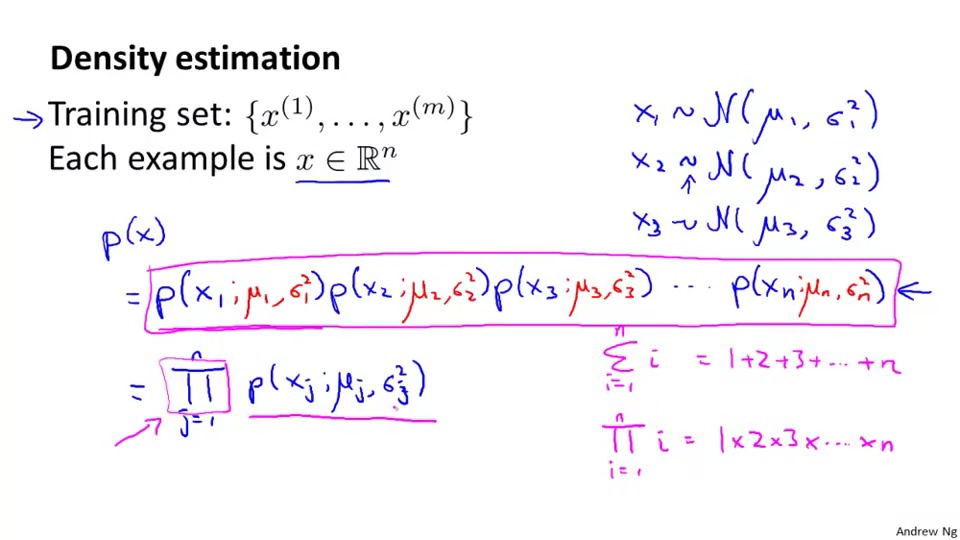 Density estimation
→ Training set: {x⁽¹⁾, . . . , x⁽ᵐ⁾}
Each example is x ∈ ℝⁿ
x₁ ~ N(μ₁, σ₁²)
x₂ ~ N(μ₂, σ₂²)
↑
x₃ ~ N(μ₃, σ₃²)
p(x)
= p(x₁; μ₁, σ₁²) p(x₂; μ₂, σ₂²) p(x₃; μ₃, σ₃²) ⋯ p(xₙ; μₙ, σₙ²) ←
= ∏ⁿⱼ₌₁ p(xⱼ; μⱼ, σⱼ²)
∑ⁿᵢ₌₁ i = 1+2+3+…+n
∏ⁿᵢ₌₁ i = 1×2×3×…×n
Andrew Ng